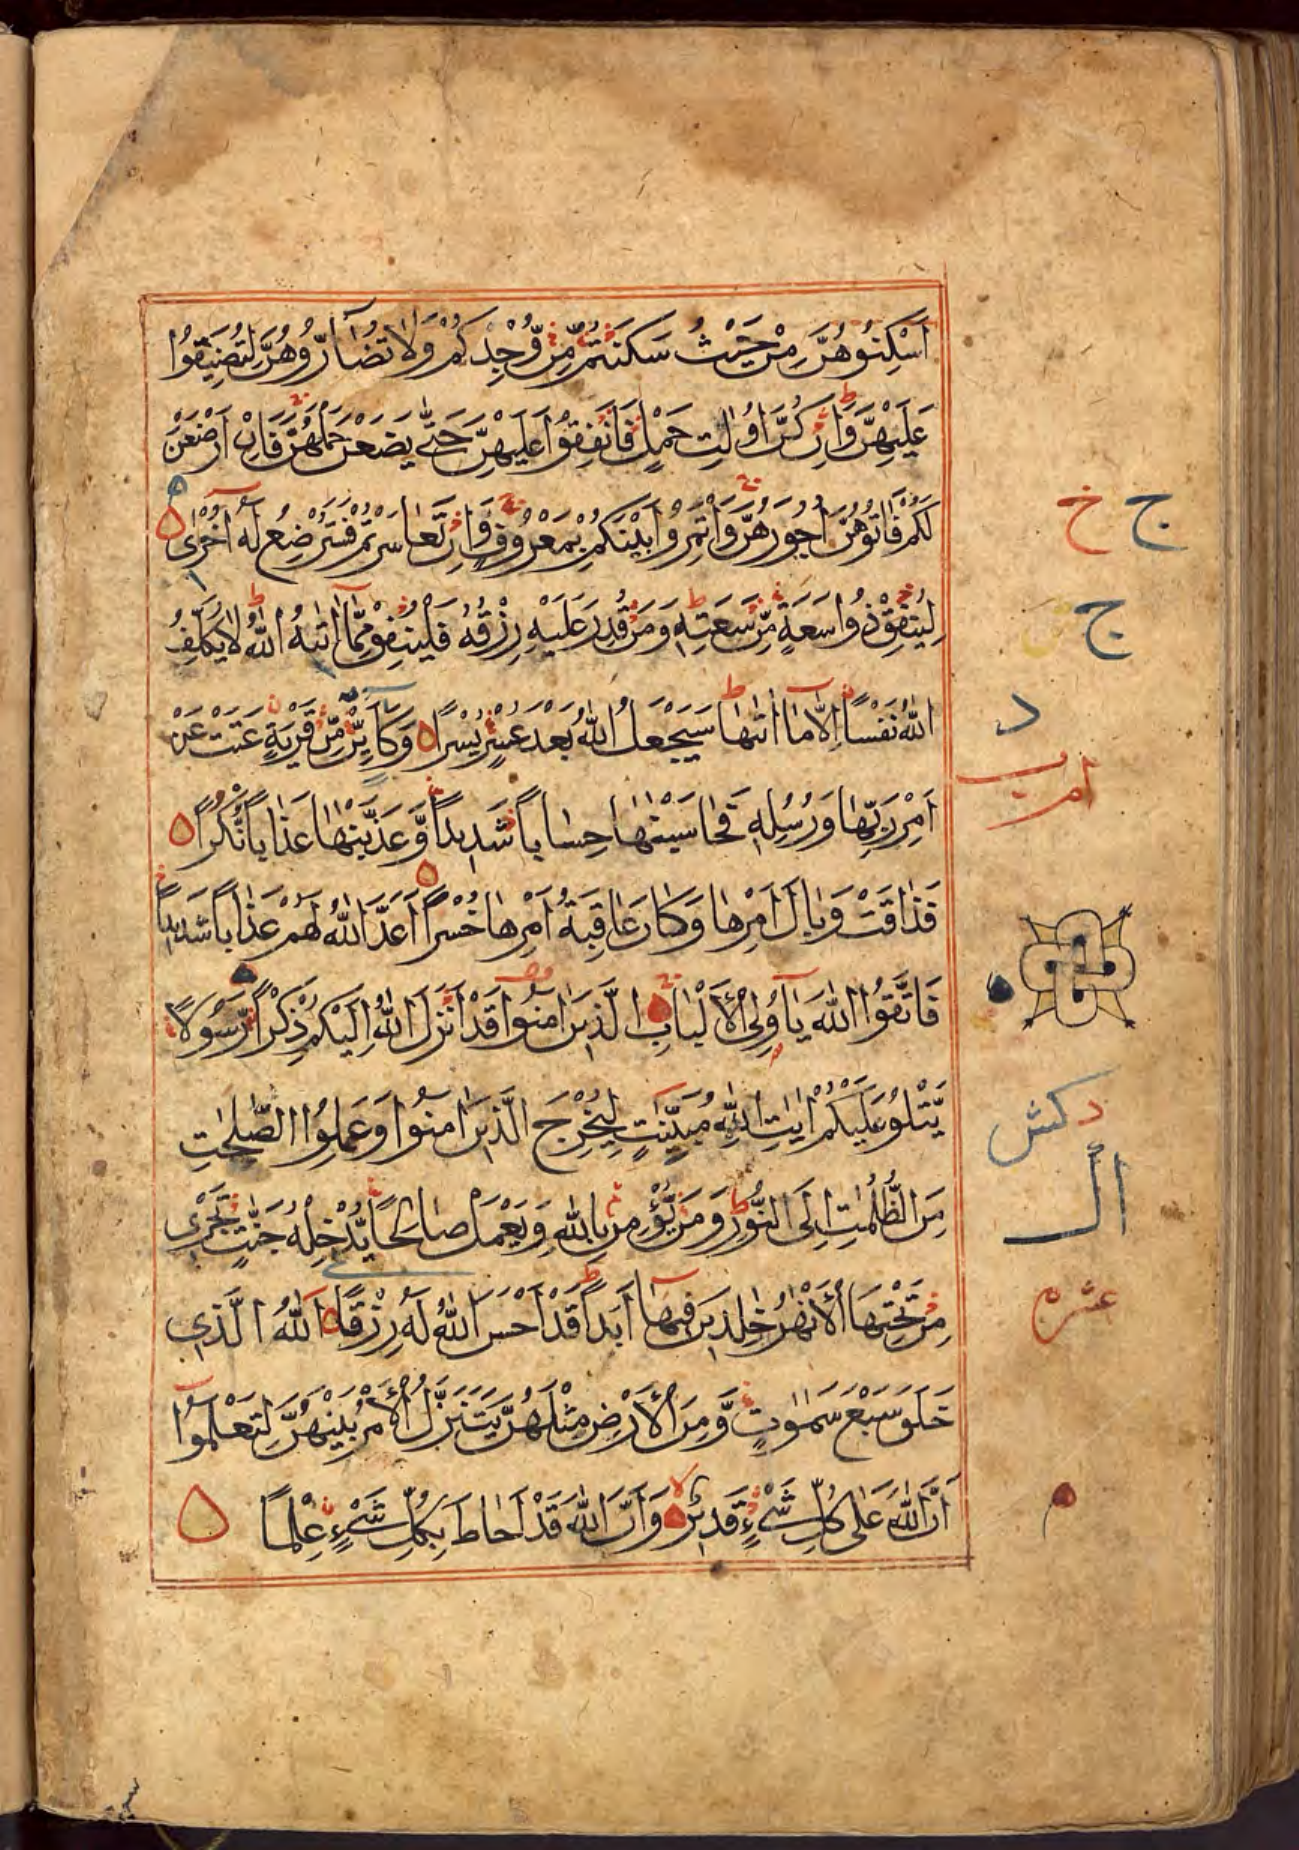 اَسْكِنُوهُنَّ مِنْ حَيْثُ سَكَنْتُمْ مِّنْ وُّجْدِكُمْ وَلَا تُضَآرُّوهُنَّ لِتُضَيِّقُوا
عَلَيْهِنَّ وَاِنْ كُنَّ اُولٰتِ حَمْلٍ فَاَنْفِقُوا عَلَيْهِنَّ حَتّٰى يَضَعْنَ حَمْلَهُنَّ فَاِنْ اَرْضَعْنَ
لَكُمْ فَاٰتُوهُنَّ اُجُورَهُنَّ وَاْتَمِرُوا بَيْنَكُمْ بِمَعْرُوفٍ وَاِنْ تَعَاسَرْتُمْ فَسَتُرْضِعُ لَهٗ اُخْرٰى
ج خ
لِيُنْفِقْ ذُو سَعَةٍ مِّنْ سَعَتِهٖ وَمَنْ قُدِرَ عَلَيْهِ رِزْقُهٗ فَلْيُنْفِقْ مِمَّا اٰتٰىهُ اللّٰهُ لَا يُكَلِّفُ
ج
اللّٰهُ نَفْسًا اِلَّا مَا اٰتٰىهَا سَيَجْعَلُ اللّٰهُ بَعْدَ عُسْرٍ يُسْرًا وَكَاَيِّنْ مِّنْ قَرْيَةٍ عَتَتْ عَنْ
د
اَمْرِ رَبِّهَا وَرُسُلِهٖ فَحَاسَبْنٰهَا حِسَابًا شَدِيدًا وَّعَذَّبْنٰهَا عَذَابًا نُّكْرًا
فَذَاقَتْ وَبَالَ اَمْرِهَا وَكَانَ عَاقِبَةُ اَمْرِهَا خُسْرًا اَعَدَّ اللّٰهُ لَهُمْ عَذَابًا شَدِيدًا
فَاتَّقُوا اللّٰهَ يَا اُولِى الْاَلْبَابِ الَّذِينَ اٰمَنُوا قَدْ اَنْزَلَ اللّٰهُ اِلَيْكُمْ ذِكْرًا رَّسُولًا
يَّتْلُو عَلَيْكُمْ اٰيٰتِ اللّٰهِ مُبَيِّنٰتٍ لِيُخْرِجَ الَّذِينَ اٰمَنُوا وَعَمِلُوا الصّٰلِحٰتِ
د كش
مِنَ الظُّلُمٰتِ اِلَى النُّورِ وَمَنْ يُّؤْمِنْ بِاللّٰهِ وَيَعْمَلْ صَالِحًا يُّدْخِلْهُ جَنّٰتٍ تَجْرِى
مِنْ تَحْتِهَا الْاَنْهٰرُ خٰلِدِينَ فِيهَا اَبَدًا قَدْ اَحْسَنَ اللّٰهُ لَهٗ رِزْقًا اَللّٰهُ الَّذِى
خَلَقَ سَبْعَ سَمٰوٰتٍ وَّمِنَ الْاَرْضِ مِثْلَهُنَّ يَتَنَزَّلُ الْاَمْرُ بَيْنَهُنَّ لِتَعْلَمُوا
اَنَّ اللّٰهَ عَلٰى كُلِّ شَىْءٍ قَدِيرٌ وَاَنَّ اللّٰهَ قَدْ اَحَاطَ بِكُلِّ شَىْءٍ عِلْمًا